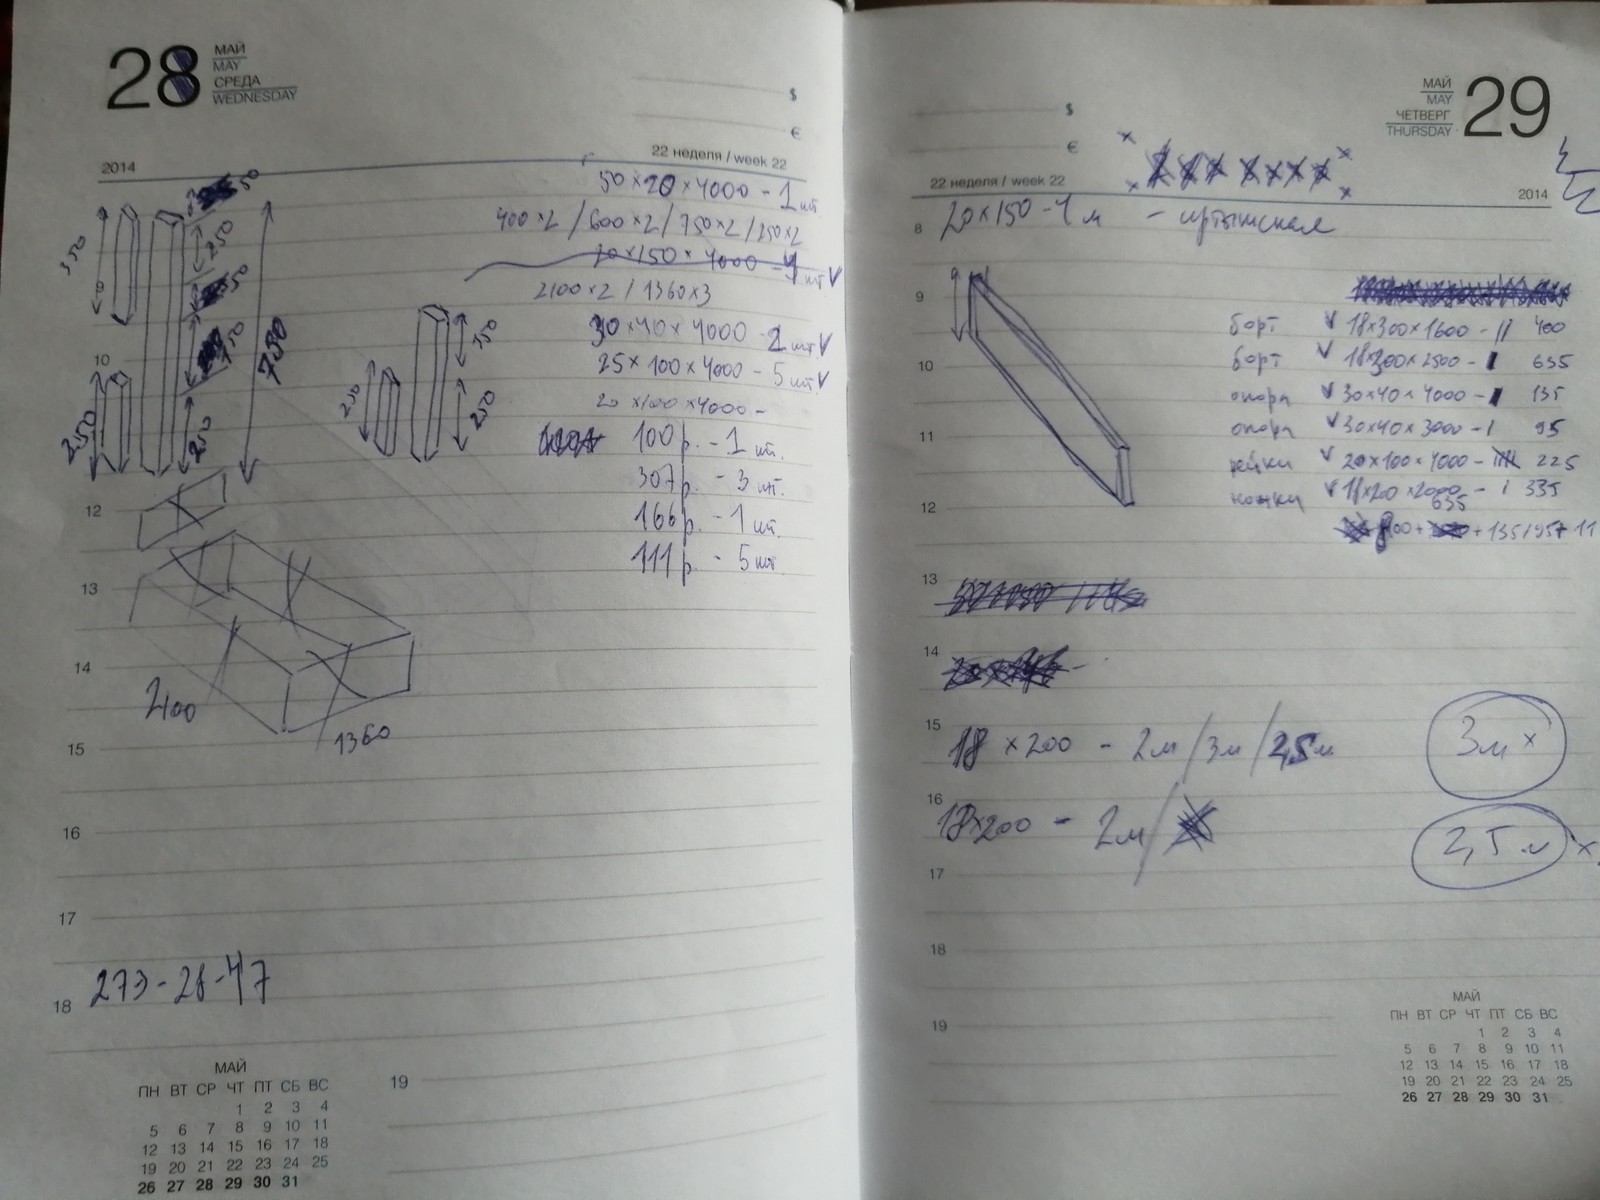 28
МАЙ
MAY
СРЕДА
WEDNESDAY
$
€
22 неделя / week 22
2014
50×20×4000 - 1 шт
400×2 / 600×2 / 750×2 / 250×2
20×150×4000 - 4 шт V
2100×2 / 1360×3
30×40×4000 - 2 шт V
25×100×4000 - 5 шт V
20×100×4000 -
100 р. - 1 шт.
307 р. - 3 шт.
166 р. - 1 шт.
111 р. - 5 шт.
50
350
250
50
150
750
250
250
150
250
250
10
12
13
14
2100
1360
15
16
17
18
273-28-47
19
МАЙ
ПН ВТ СР ЧТ ПТ СБ ВС
1 2 3 4
5 6 7 8 9 10 11
12 13 14 15 16 17 18
19 20 21 22 23 24 25
26 27 28 29 30 31
МАЙ
MAY
ЧЕТВЕРГ
THURSDAY
29
$
€
22 неделя / week 22
2014
8
20×150-4 м - иртышская
9
борт V 18×300×1600 - || 400
борт V 18×300×2500 - | 635
10
опора V 30×40×4000 - | 135
опора V 30×40×3000 - | 95
11
рейки V 20×100×4000 - 225
ножки V 18×200×2000 - | 335
12
635
+ 135 / 95 + 11
13
14
15
18×200 - 2м / 3м / 2,5м
3м ×
16
18×200 - 2м /
2,5 м ×
17
18
19
МАЙ
ПН ВТ СР ЧТ ПТ СБ ВС
1 2 3 4
5 6 7 8 9 10 11
12 13 14 15 16 17 18
19 20 21 22 23 24 25
26 27 28 29 30 31